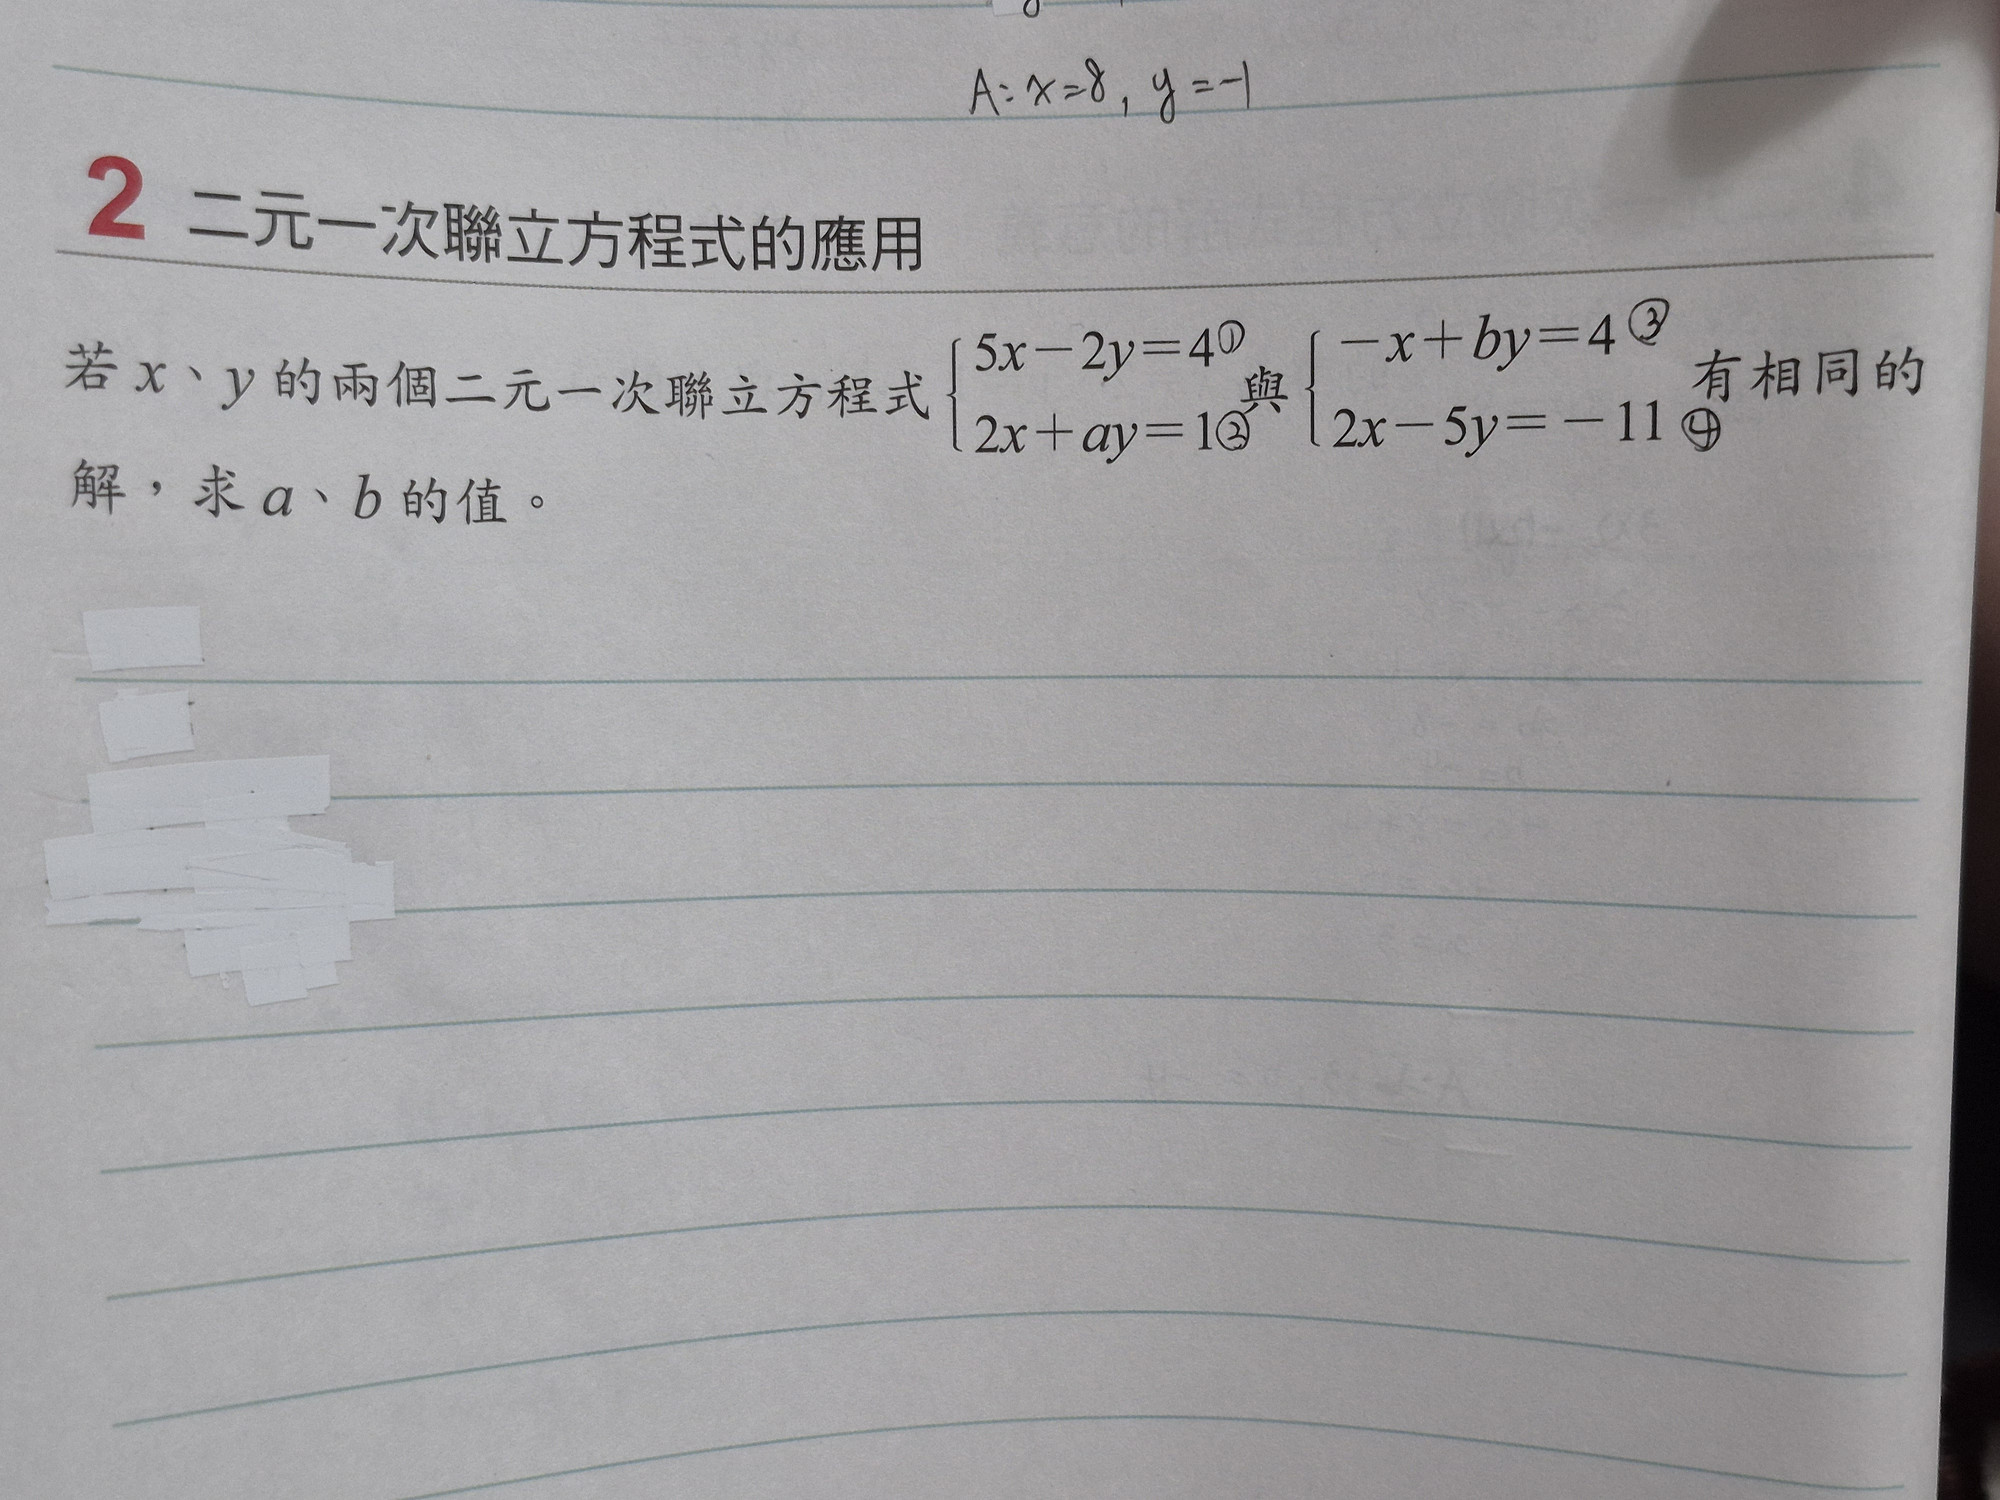 A: x=8, y=-1
2 二元一次聯立方程式的應用
若 x、y 的兩個二元一次聯立方程式 { 5x-2y=4① 2x+ay=1② 與 { -x+by=4③ 2x-5y=-11④ 有相同的
解,求 a、b 的值。